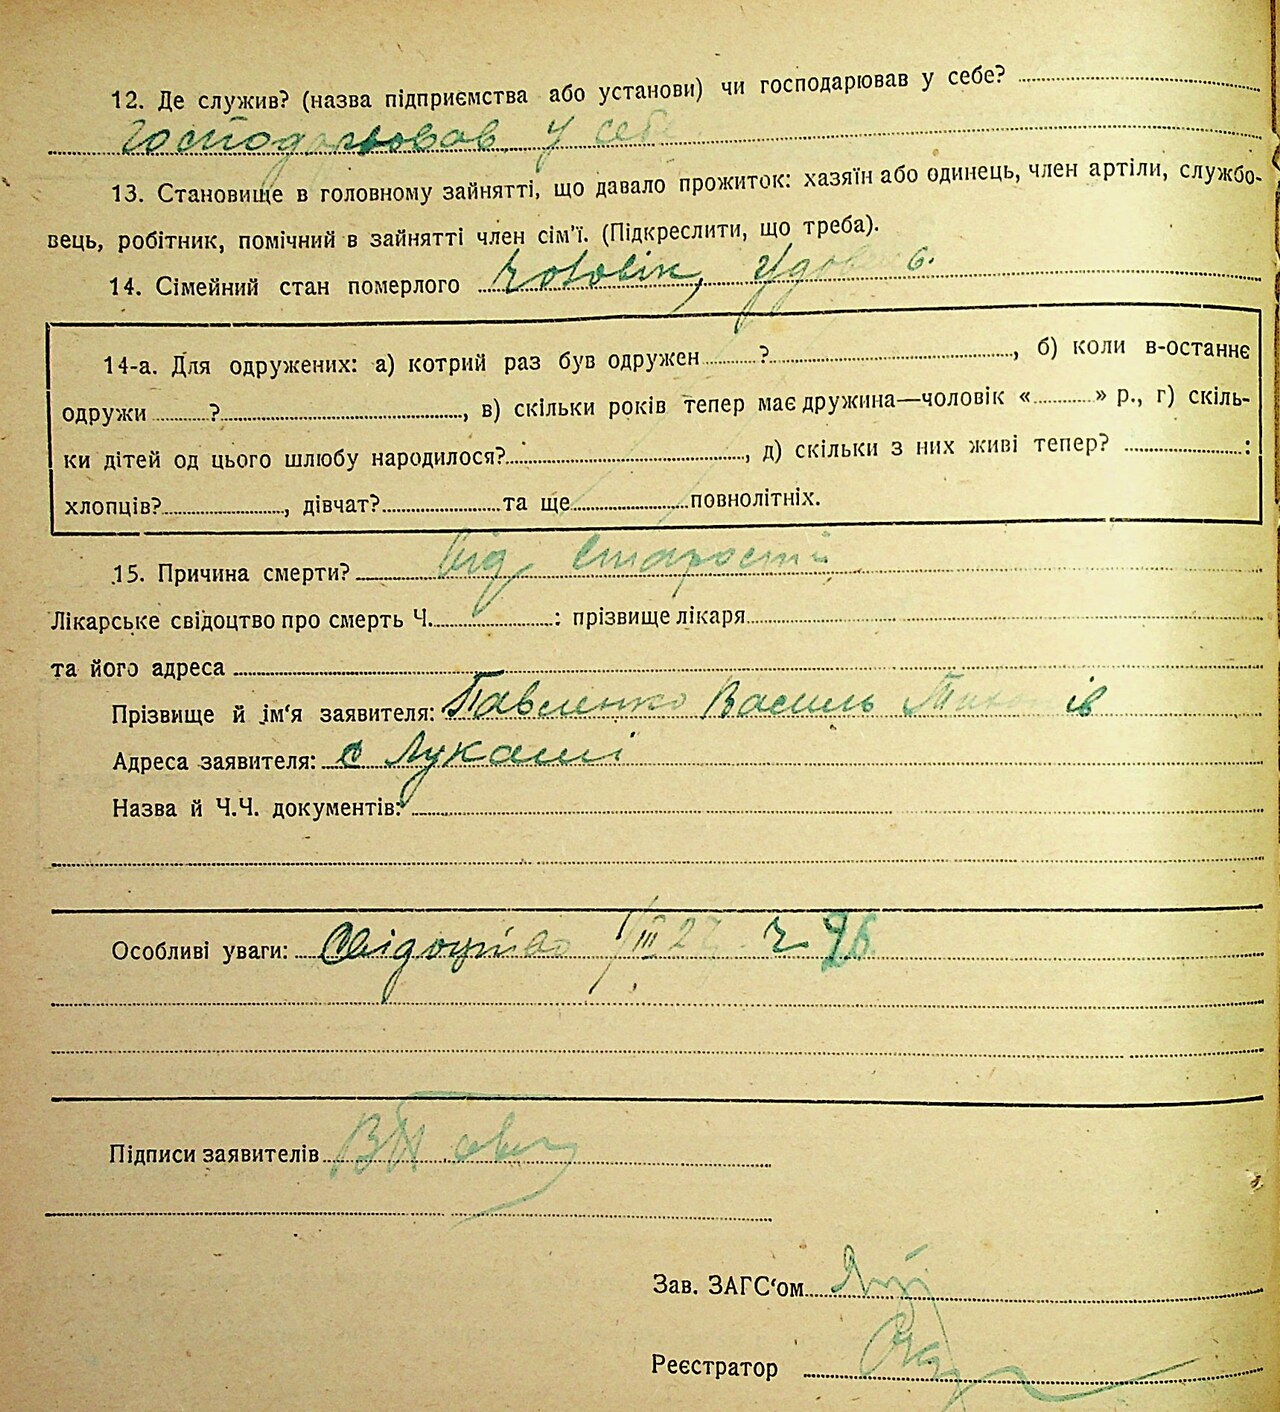 12. Де служив? (назва підприємства або установи) чи господарював у себе?
Господарював у себе
13. Становище в головному зайнятті, що давало прожиток: хазяїн або одинець, член артіли, службо-
вець, робітник, помічний в зайнятті член сім'ї. (Підкреслити, що треба).
14. Сімейний стан померлого Чоловік, Удовець
14-а. Для одружених: а) котрий раз був одружен ?, б) коли в-останнє
одружи ?, в) скільки років тепер має дружина—чоловік « » р., г) скіль-
ки дітей од цього шлюбу народилося?, д) скільки з них живі тепер? :
хлопців?, дівчат? та ще повнолітніх.
15. Причина смерти? Від старости
Лікарське свідоцтво про смерть Ч. : прізвище лікаря
та його адреса
Прізвище й ім'я заявителя: Павленко Василь
Адреса заявителя: с Лукаші
Назва й Ч.Ч. документів:
Особливі уваги: Свідоцтво 1/III 27 ч 96
Підписи заявителів
Зав. ЗАГС'ом
Реєстратор